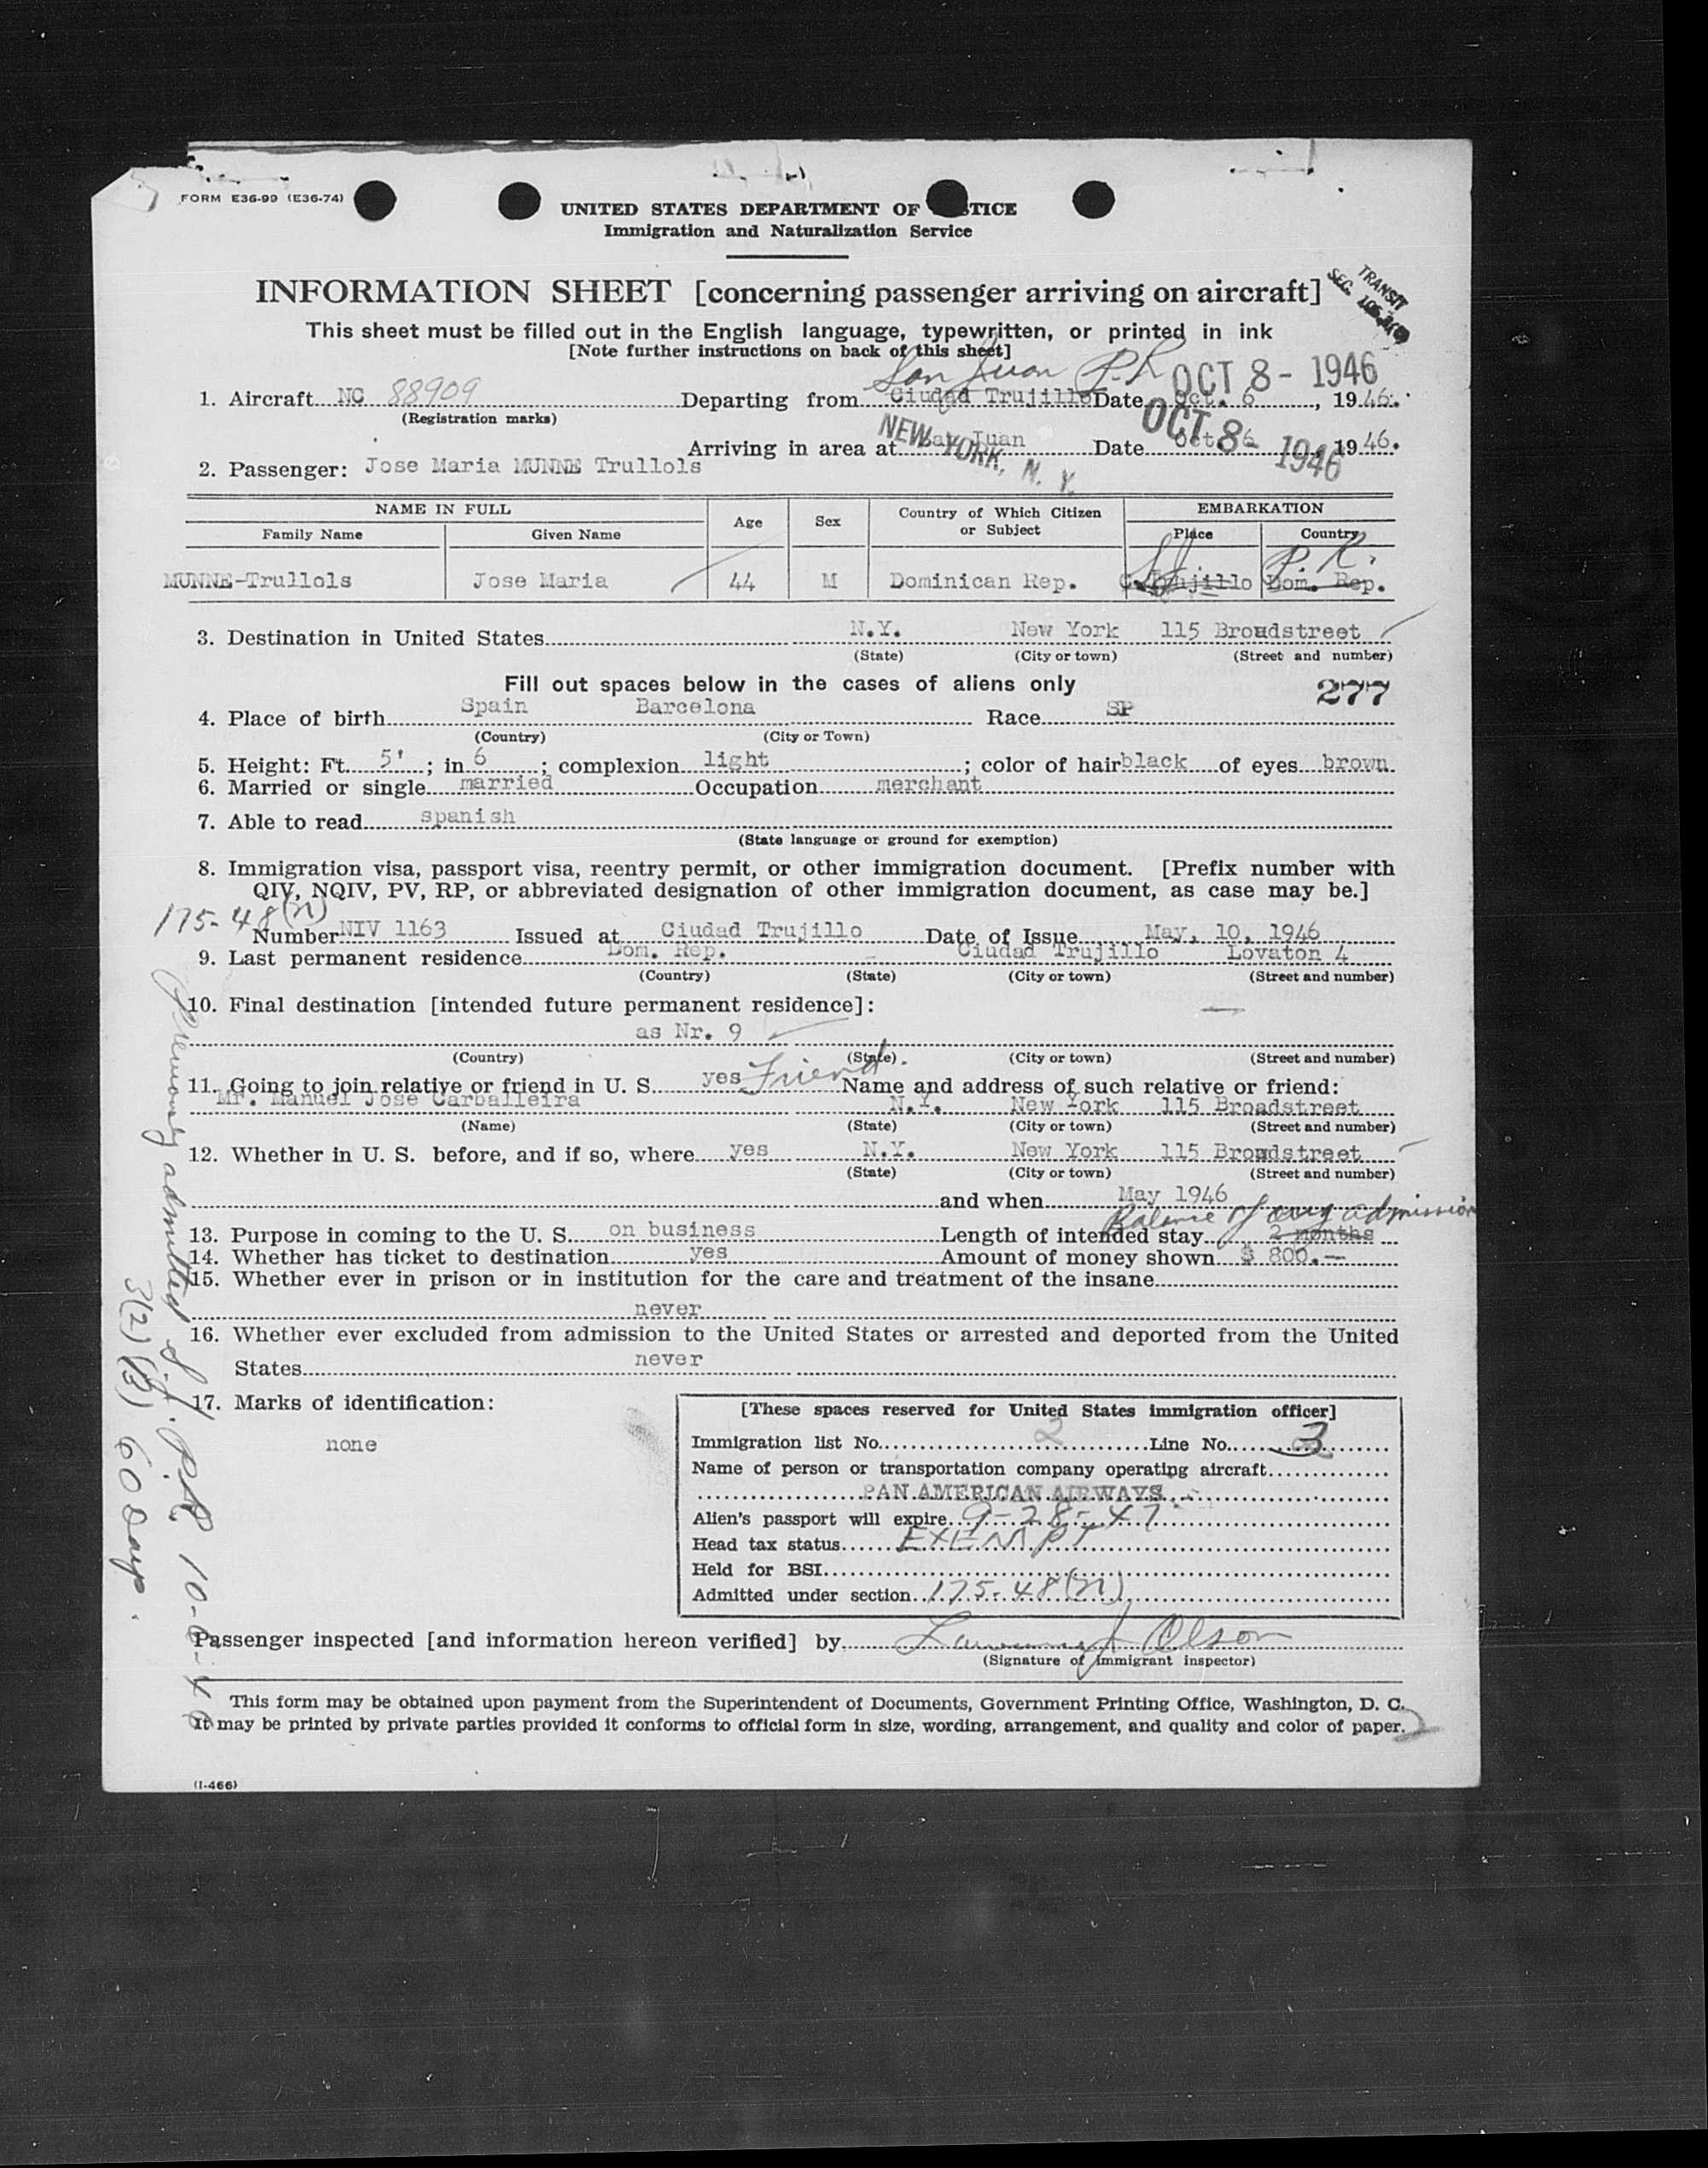 FORM E36-99 (E36-74)
UNITED STATES DEPARTMENT OF TICE
Immigration and Naturalization Service
INFORMATION SHEET [concerning passenger arriving on aircraft]
TRANSIT
SEC.
This sheet must be filled out in the English language, typewritten, or printed in ink
[Note further instructions on back of this sheet]
San Juan P.R. OCT 8 - 1946
1. Aircraft NC 88909 Departing from Ciudad Trujillo Date Oct. 6, 1946.
(Registration marks)
NEW YORK, N. Y. OCT 8 - 1946
Arriving in area at San Juan Date Oct. 6, 1946.
2. Passenger: Jose Maria MUNNE Trullols
NAME IN FULL Age Sex Country of Which Citizen or Subject EMBARKATION
Family Name Given Name Place Country
S.J. P.R.
MUNNE-Trullols Jose Maria 44 M Dominican Rep. C. Trujillo Dom. Rep.
3. Destination in United States N.Y. New York 115 Broadstreet
(State) (City or town) (Street and number)
Fill out spaces below in the cases of aliens only
277
4. Place of birth Spain Barcelona Race SP
(Country) (City or Town)
5. Height: Ft. 5' ; in 6 ; complexion light ; color of hair black of eyes brown
6. Married or single married Occupation merchant
7. Able to read spanish
(State language or ground for exemption)
8. Immigration visa, passport visa, reentry permit, or other immigration document. [Prefix number with
QIV, NQIV, PV, RP, or abbreviated designation of other immigration document, as case may be.]
175-48(n)
Number NIV 1163 Issued at Ciudad Trujillo Date of Issue May, 10, 1946
9. Last permanent residence Dom. Rep. Ciudad Trujillo Lovaton 4
(Country) (State) (City or town) (Street and number)
10. Final destination [intended future permanent residence]:
as Nr. 9
(Country) (State) (City or town) (Street and number)
11. Going to join relative or friend in U. S. yes Friend. Name and address of such relative or friend:
Mr. Manuel Jose Carballeira N.Y. New York 115 Broadstreet
(Name) (State) (City or town) (Street and number)
12. Whether in U. S. before, and if so, where yes N.Y. New York 115 Broadstreet
(State) (City or town) (Street and number)
and when May 1946
Balance of orig admission
13. Purpose in coming to the U. S. on business Length of intended stay 2 months
14. Whether has ticket to destination yes Amount of money shown $ 800.—
15. Whether ever in prison or in institution for the care and treatment of the insane
never
16. Whether ever excluded from admission to the United States or arrested and deported from the United
States never
17. Marks of identification:
none
[These spaces reserved for United States immigration officer]
Immigration list No. 2 Line No. 3
Name of person or transportation company operating aircraft
PAN AMERICAN AIRWAYS
Alien's passport will expire 9-28-47
Head tax status EXEMPT
Held for BSI
Admitted under section 175-48(n)
Passenger inspected [and information hereon verified] by Lawrence J Olson
(Signature of immigrant inspector)
This form may be obtained upon payment from the Superintendent of Documents, Government Printing Office, Washington, D. C.
It may be printed by private parties provided it conforms to official form in size, wording, arrangement, and quality and color of paper.
(I-466)
Previously admitted S.J. P.R. 10-6-46
3(2) (B) 60 days.